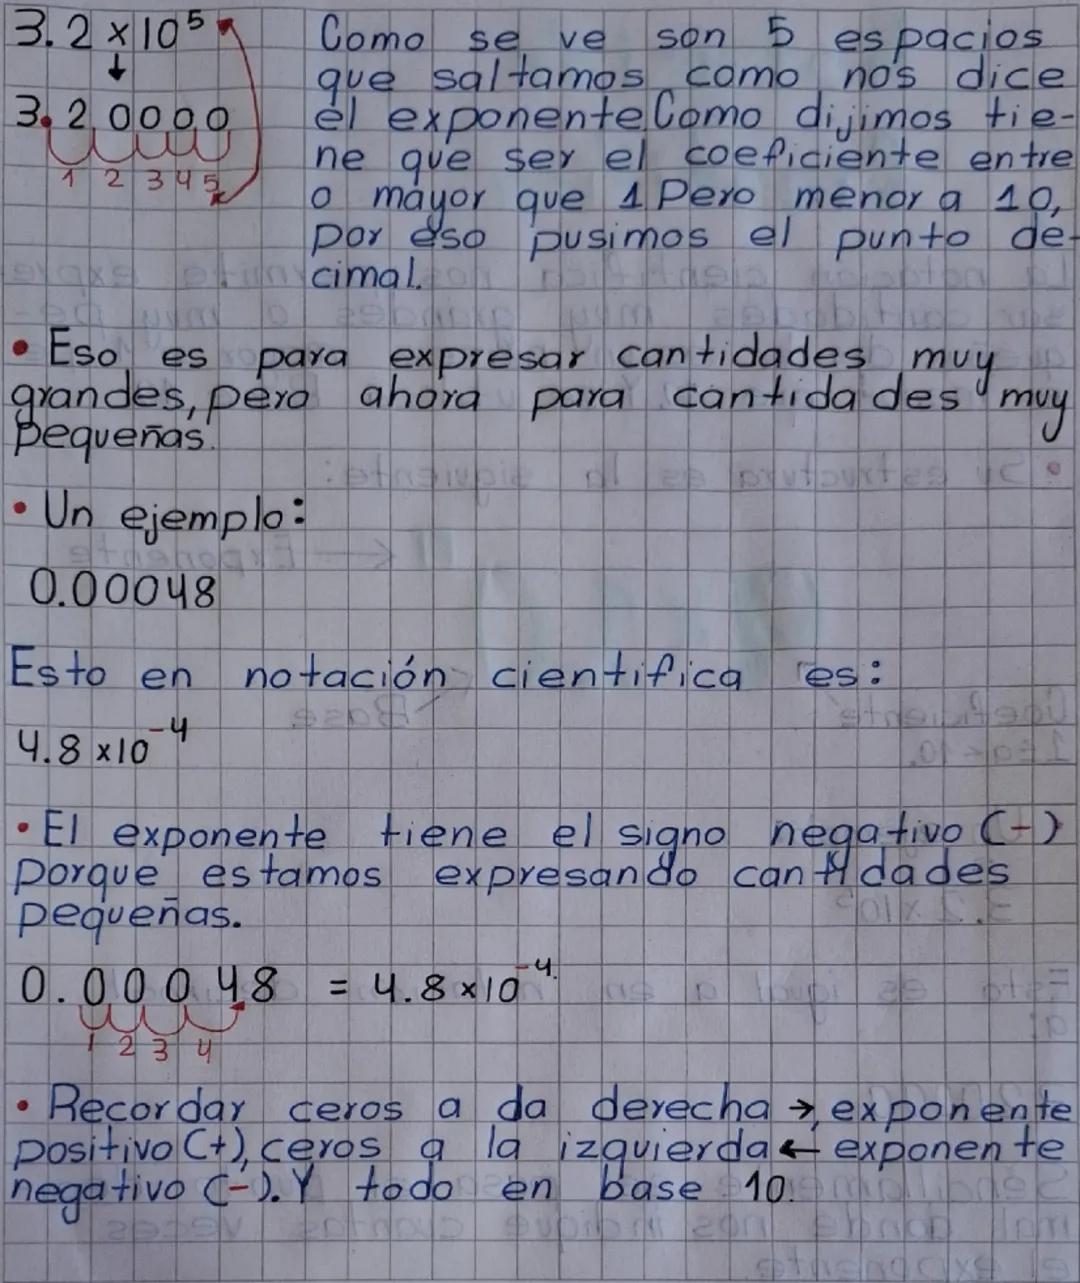 3.2 × 10⁵
↓
3.20000
1 2 3 4 5
Como se ve son 5 espacios
que saltamos como nos dice
el exponente. Como dijimos tie-
ne que ser el coeficiente entre
o mayor que 1 Pero menor a 10,
por eso pusimos el punto de-
cimal.
• Eso es para expresar cantidades muy
grandes, pero ahora para cantidades muy
pequeñas.
• Un ejemplo:
0.00048
Esto en notación cientifica es:
4.8 ×10⁻⁴
• El exponente tiene el signo negativo (-)
porque estamos expresando cantidades
pequeñas.
0.00048 = 4.8 ×10⁻⁴.
1 2 3 4
• Recordar ceros a da derecha → exponente
positivo (+), ceros a la izquierda ← exponente
negativo (-). Y todo en base 10.